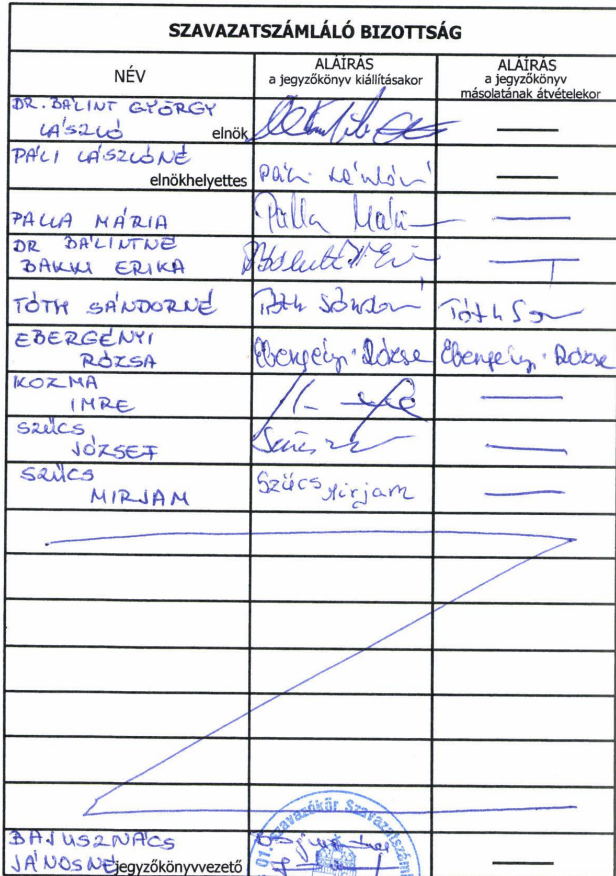 SZAVAZATSZÁMLÁLÓ BIZOTTSÁG
NÉV
ALÁÍRÁS
a jegyzőkönyv kiállításakor
ALÁÍRÁS
a jegyzőkönyv
másolatának átvételekor
DR. BÁLINT GYÖRGY
LÁSZLÓ elnök
PÁLI LÁSZLÓNÉ
elnökhelyettes
PALLA MÁRIA Palla
DR BÁLINTNÉ
BAKKI ERIKA
TÓTH SÁNDORNÉ Tóth Sándor Tóth
EBERGÉNYI
RÓZSA Ebergényi Rózsa Ebergényi Rózsa
KOZMA
IMRE
SZŰCS
JÓZSEF
SZŰCS
MIRJAM Szűcs Mirjam
01. szavazókör
BAJUSZNÁCS
JÁNOSNÉ jegyzőkönyvvezető